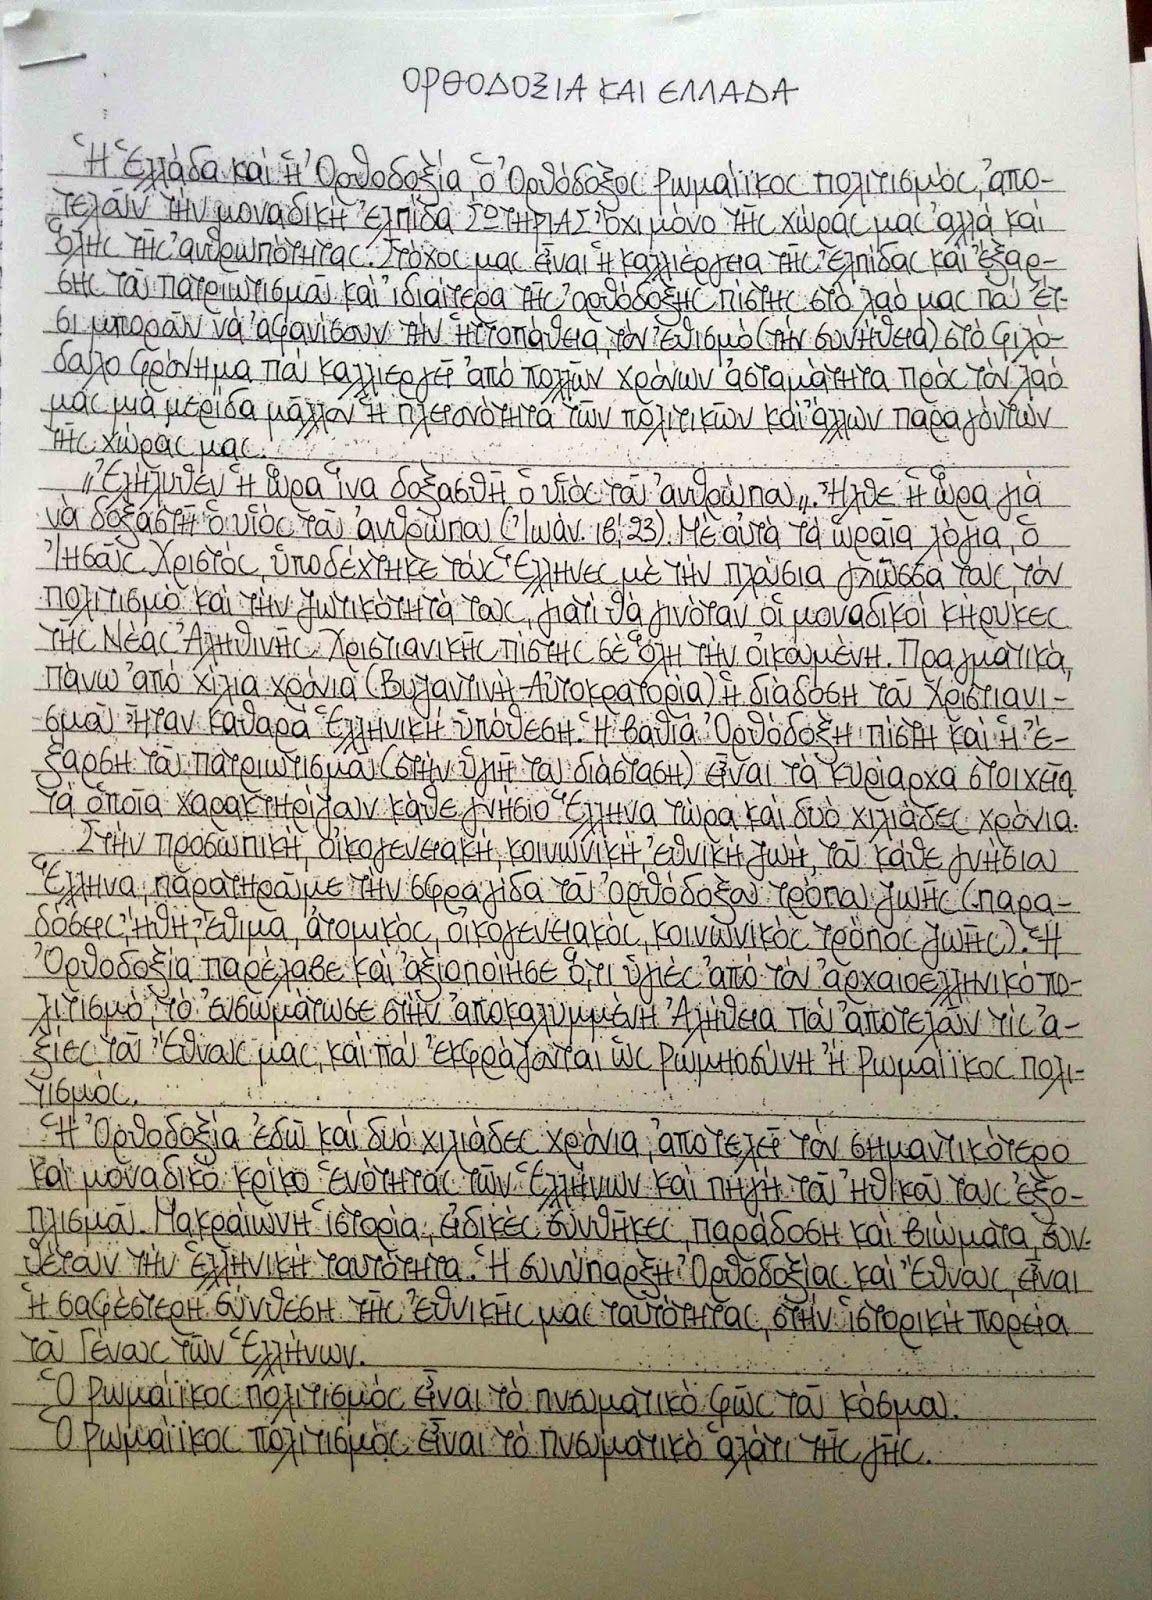 ΟΡΘΟΔΟΞΙΑ ΚΑΙ ΕΛΛΑΔΑ
Ἡ Ἑλλάδα καί ἡ Ὀρθοδοξία, ὁ Ὀρθόδοξος Ρωμαίικος πολιτισμός, ἀπο-
τελοῦν τήν μοναδική ἐλπίδα ΣΩΤΗΡΙΑΣ ὄχι μόνο τῆς χώρας μας ἀλλά καί
ὅλης τῆς ἀνθρωπότητας. Στόχος μας εἶναι ἡ καλλιέργεια τῆς ἐλπίδας καί ἔξαρ-
σης τοῦ πατριωτισμοῦ καί ἰδιαίτερα τῆς ὀρθόδοξης πίστης στό λαό μας πού ἔτ-
σι μποροῦν νά ἀφανίσουν τήν ἡττοπάθεια, τόν ἐθισμό (τήν συνήθεια) στό φιλό-
δουλο φρόνημα πού καλλιεργεῖ ἀπό πολλῶν χρόνων ἀσταμάτητα πρός τόν λαό
μας μιά μερίδα μᾶλλον ἡ πλειονότητα τῶν πολιτικῶν καί ἄλλων παραγόντων
τῆς χώρας μας.
„Ἐλήλυθεν ἡ ὥρα ἵνα δοξασθῆ ὁ υἱός τοῦ ἀνθρώπου„. Ἦλθε ἡ ὥρα γιά
νά δοξαστῆ ὁ υἱός τοῦ ἀνθρώπου (Ἰωάν. ιβ΄, 23). Μέ αὐτά τά ὡραῖα λόγια, ὁ
Ἰησοῦς Χριστός, ὑποδέχτηκε τούς Ἕλληνες μέ τήν πλούσια γλῶσσά τους, τόν
πολιτισμό καί τήν ζωτικότητά τους, γιατί θά γινόταν οἱ μοναδικοί κήρυκες
τῆς Νέας Ἀληθινῆς Χριστιανικῆς πίστης σέ ὅλη τήν οἰκουμένη. Πραγματικά,
πάνω ἀπό χίλια χρόνια (Βυζαντινή Αὐτοκρατορία) ἡ διάδοση τοῦ Χριστιανι-
σμοῦ ἦταν καθαρά Ἑλληνική ὑπόθεση. Ἡ βαθιά Ὀρθόδοξη πίστη καί ἡ ἔ-
ξαρση τοῦ πατριωτισμοῦ (στήν ὑγιή του διάσταση) εἶναι τά κυρίαρχα στοιχεῖα
τά ὁποῖα χαρακτηρίζουν κάθε γνήσιο Ἕλληνα τώρα καί δυό χιλιάδες χρόνια.
Στήν προσωπική, οἰκογενειακή, κοινωνική, ἐθνική ζωή, τοῦ κάθε γνήσιου
Ἕλληνα, παρατηροῦμε τήν σφραγίδα τοῦ ὀρθόδοξου τρόπου ζωῆς (παρα-
δόσεις, ἤθη, ἔθιμα, ἀτομικός, οἰκογενειακός, κοινωνικός τρόπος ζωῆς). Ἡ
Ὀρθοδοξία παρέλαβε καί ἀξιοποίησε ὅ,τι ὑγιές ἀπό τόν ἀρχαιοελληνικό πο-
λιτισμό, τό ἐνσωμάτωσε στήν ἀποκαλυμμένη Ἀλήθεια πού ἀποτελοῦν τίς ἀ-
ξίες τοῦ Ἔθνους μας, καί πού ἐκφράζονται ὡς Ρωμηοσύνη ἤ Ρωμαίικος πολι-
τισμός.
Ἡ Ὀρθοδοξία ἐδῶ καί δυό χιλιάδες χρόνια, ἀποτελεῖ τόν σημαντικότερο
καί μοναδικό κρίκο ἑνότητας τῶν Ἑλλήνων καί πηγή τοῦ ἠθικοῦ τους ἐξο-
πλισμοῦ. Μακραίωνη ἱστορία, εἰδικές συνθῆκες, παράδοση καί βιώματα, συν-
θέτουν τήν ἑλληνική ταυτότητα. Ἡ συνύπαρξη Ὀρθοδοξίας καί Ἔθνους, εἶναι
ἡ σαφέστερη σύνθεση τῆς ἐθνικῆς μας ταυτότητας, στήν ἱστορική πορεία
τοῦ Γένους τῶν Ἑλλήνων.
Ὁ Ρωμαίικος πολιτισμός εἶναι τό πνευματικό φῶς τοῦ κόσμου.
Ὁ Ρωμαίικος πολιτισμός εἶναι τό πνευματικό ἁλάτι τῆς γῆς.